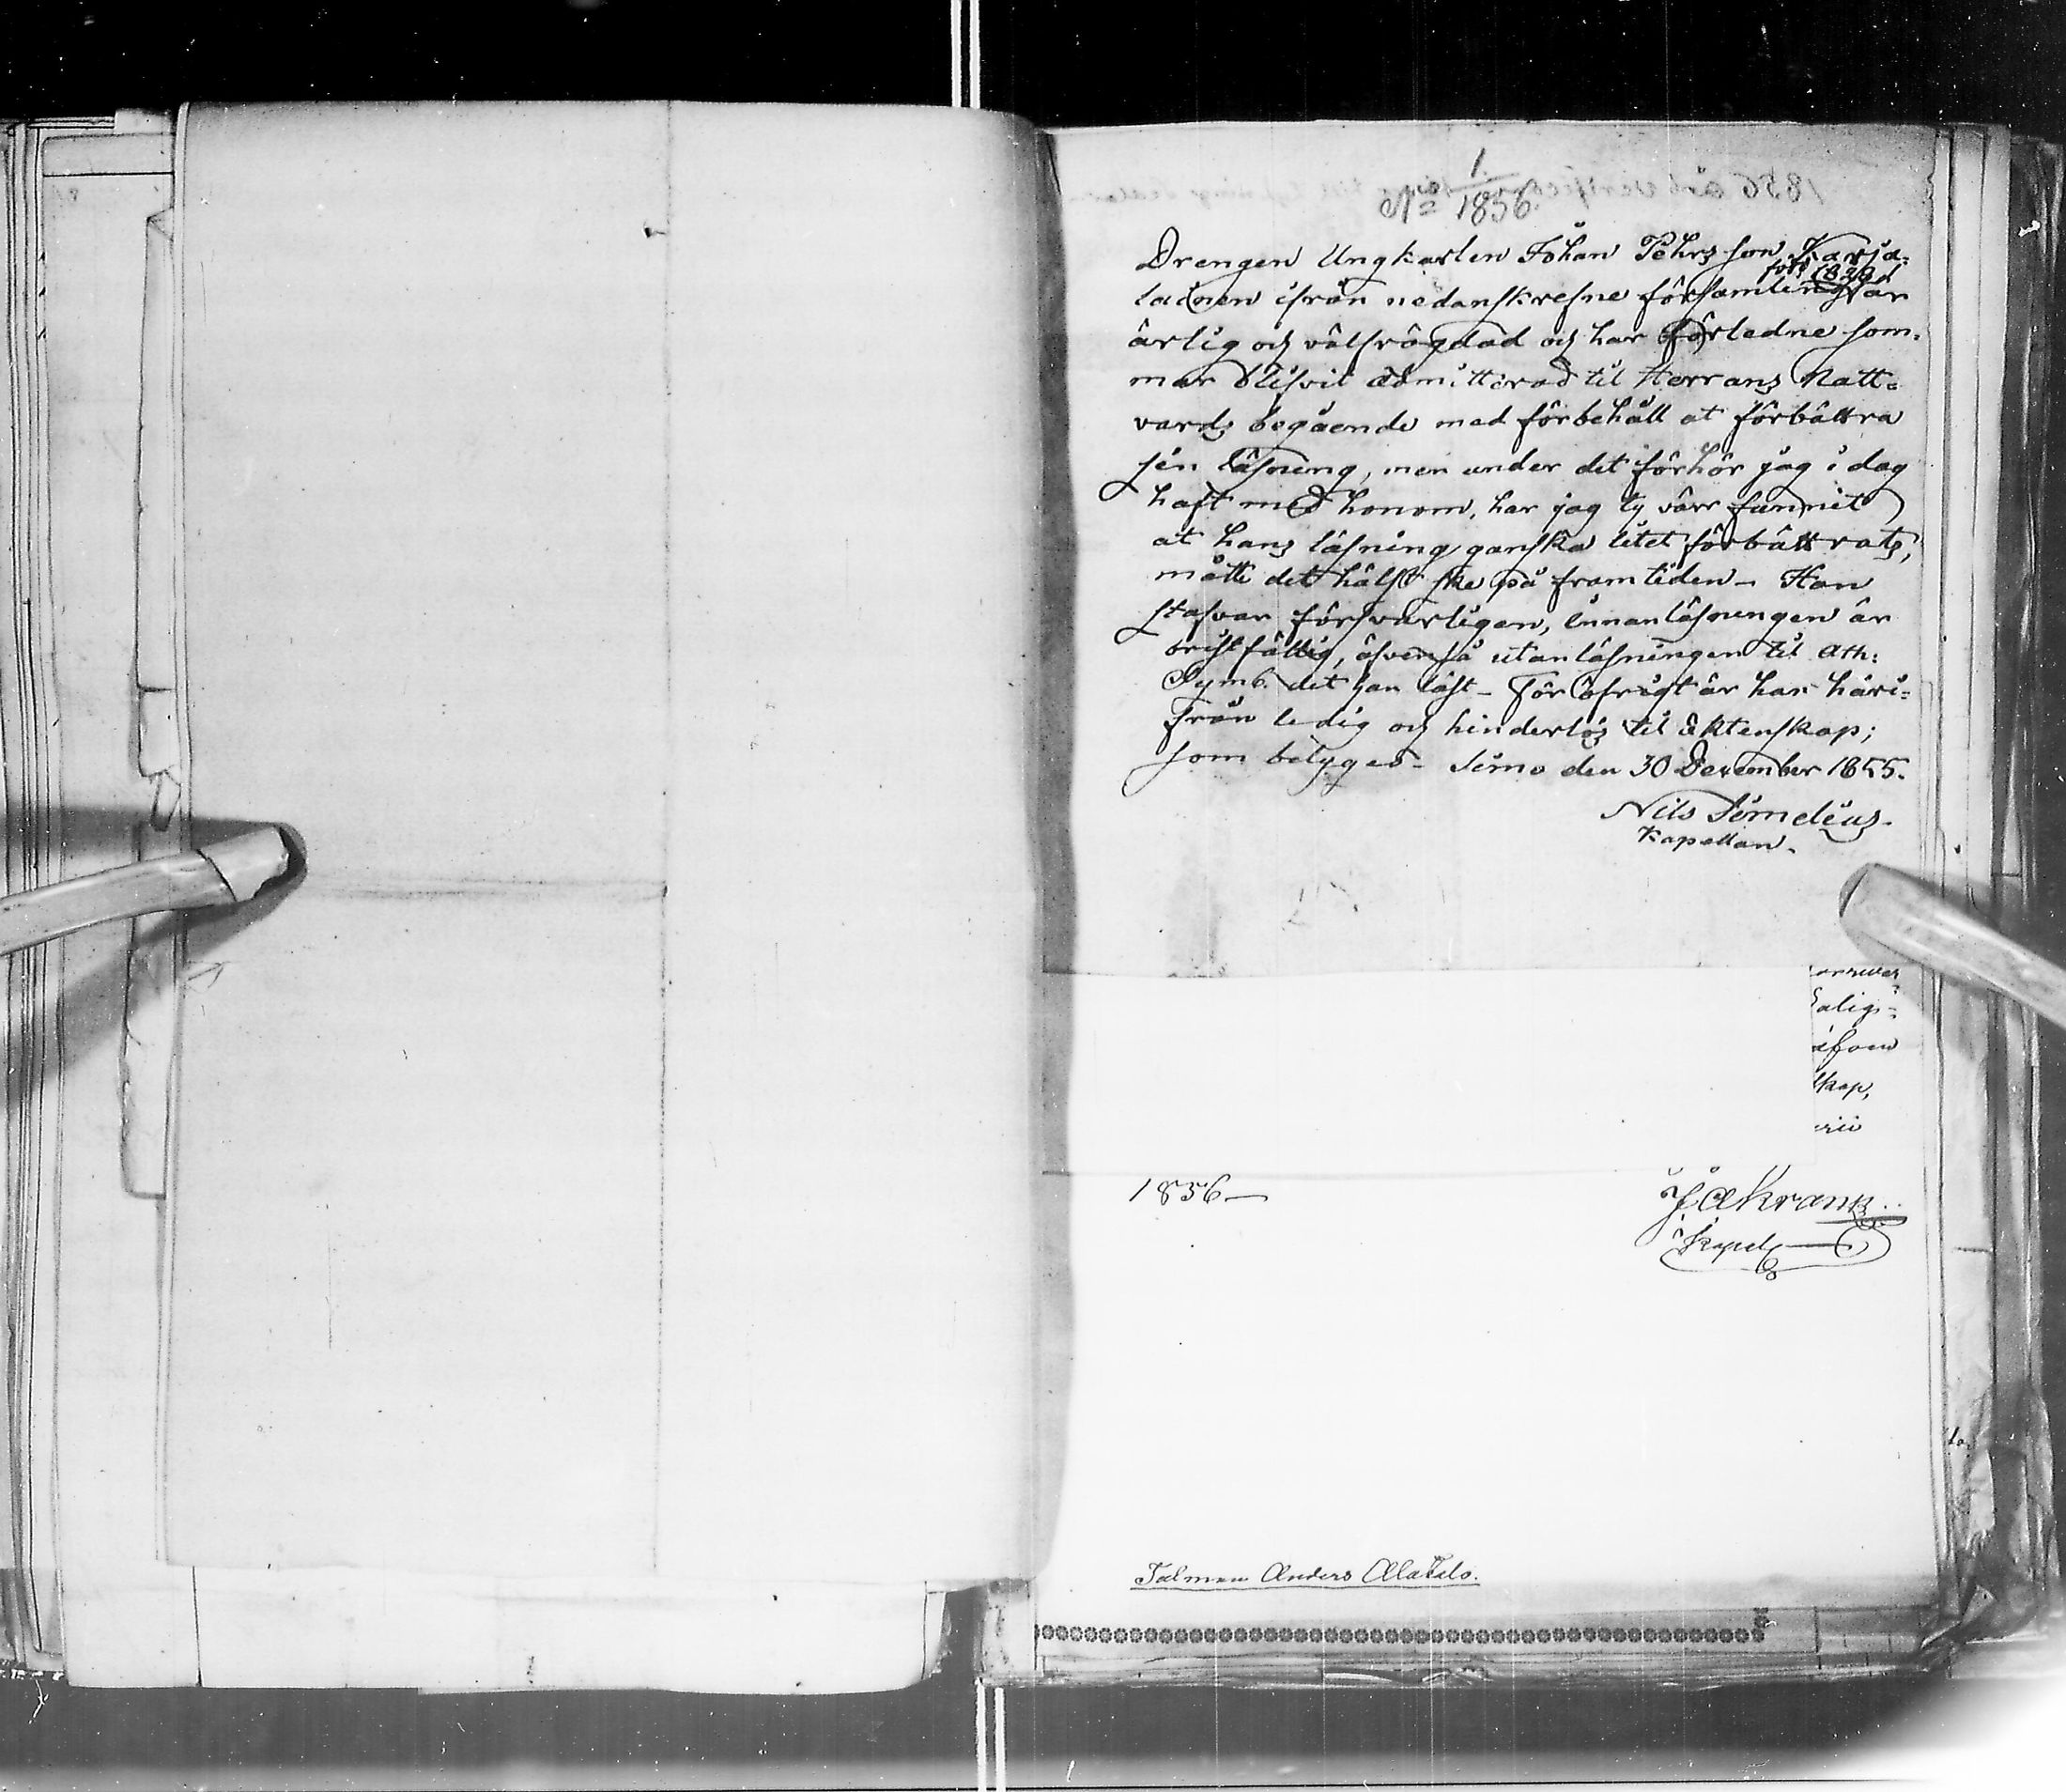 1.
No 1856.
Drengen Ungkarlen Johan Pehrs son Karja=
född 1829
lainen ifrån nedanskrefne församling är
ärlig och välfrägdad och har förledne som-
mar blifvit admitterad til Herrans Natt=
vards begående med förbehåll at förbättra
sin läsning, men under det förhör jag i dag
haft med honom, har jag ty värr funnit
at hans läsning ganska litet förbättrats,
måtte det hälst ske på framtiden – Han
stafvar försvarligen, innanläsningen är
bristfällig, äfvenså utanläsningen til Ath:
Symb. det han läst – För öfrigt är han häri=
från ledig och hinderlös til äktenskap;
som betygas – Simo den 30 December 1855.
Nils Simelius.
Kapellan.
alig=
skap,
1856 —
J Akrantz
Kapel
Talman Anders Alatalo.